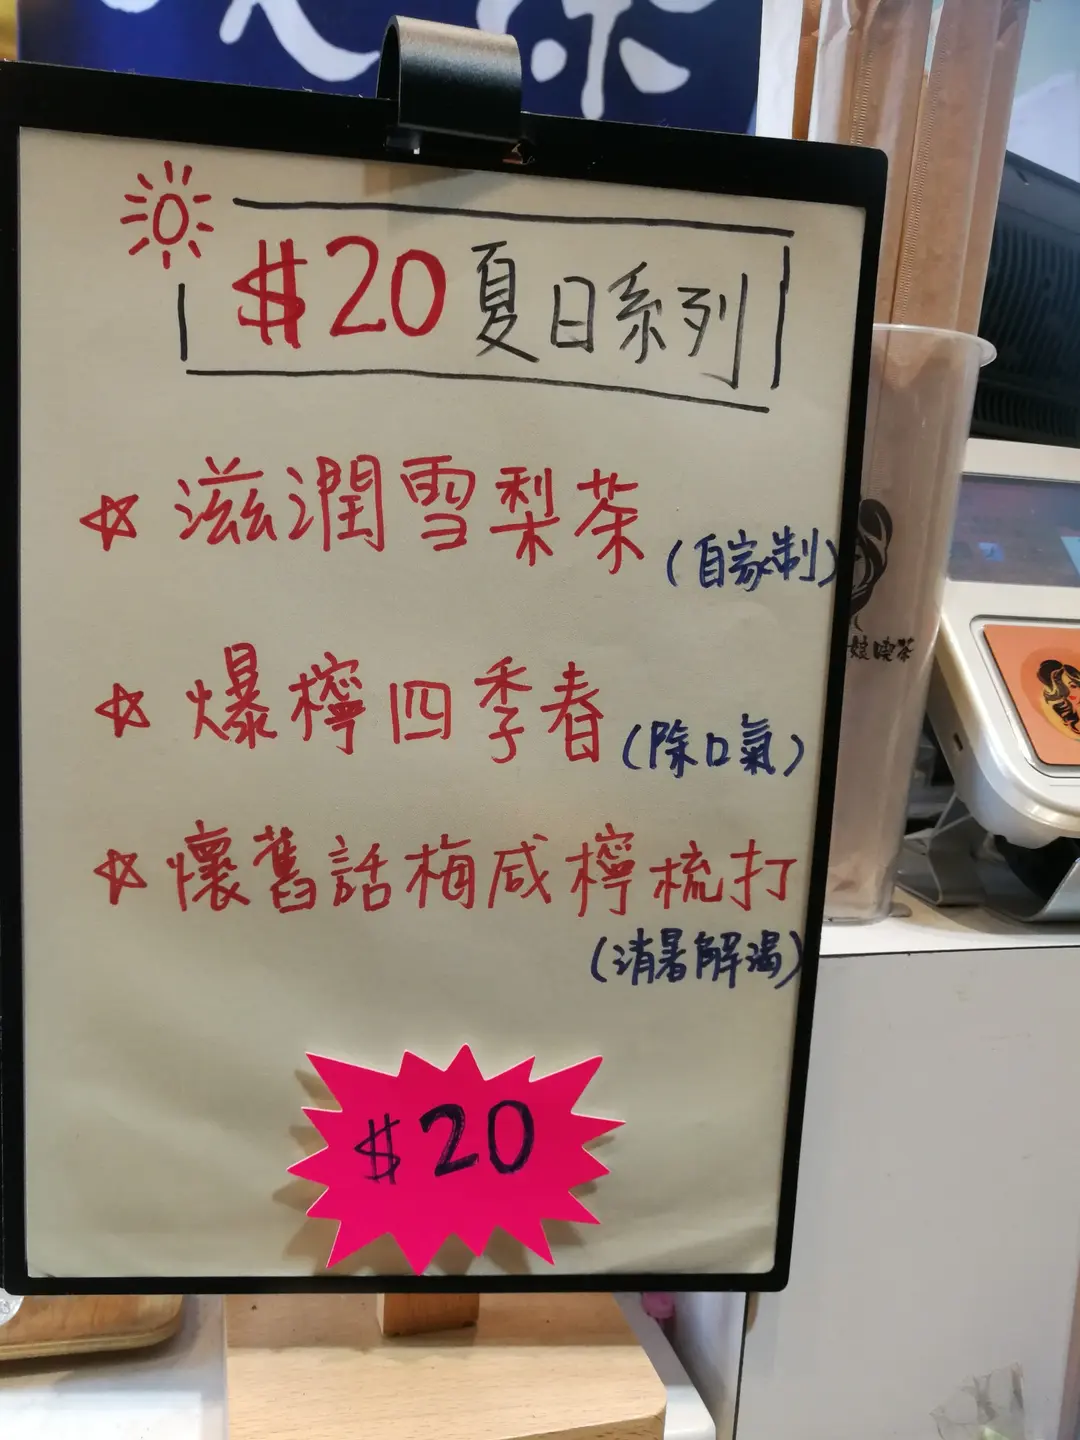 $20 夏日系列
☆ 滋潤雪梨茶 (自家制)
☆ 爆檸四季春 (除口氣)
☆ 懷舊話梅咸檸梳打
(消暑解渴)
$20
娘喫茶